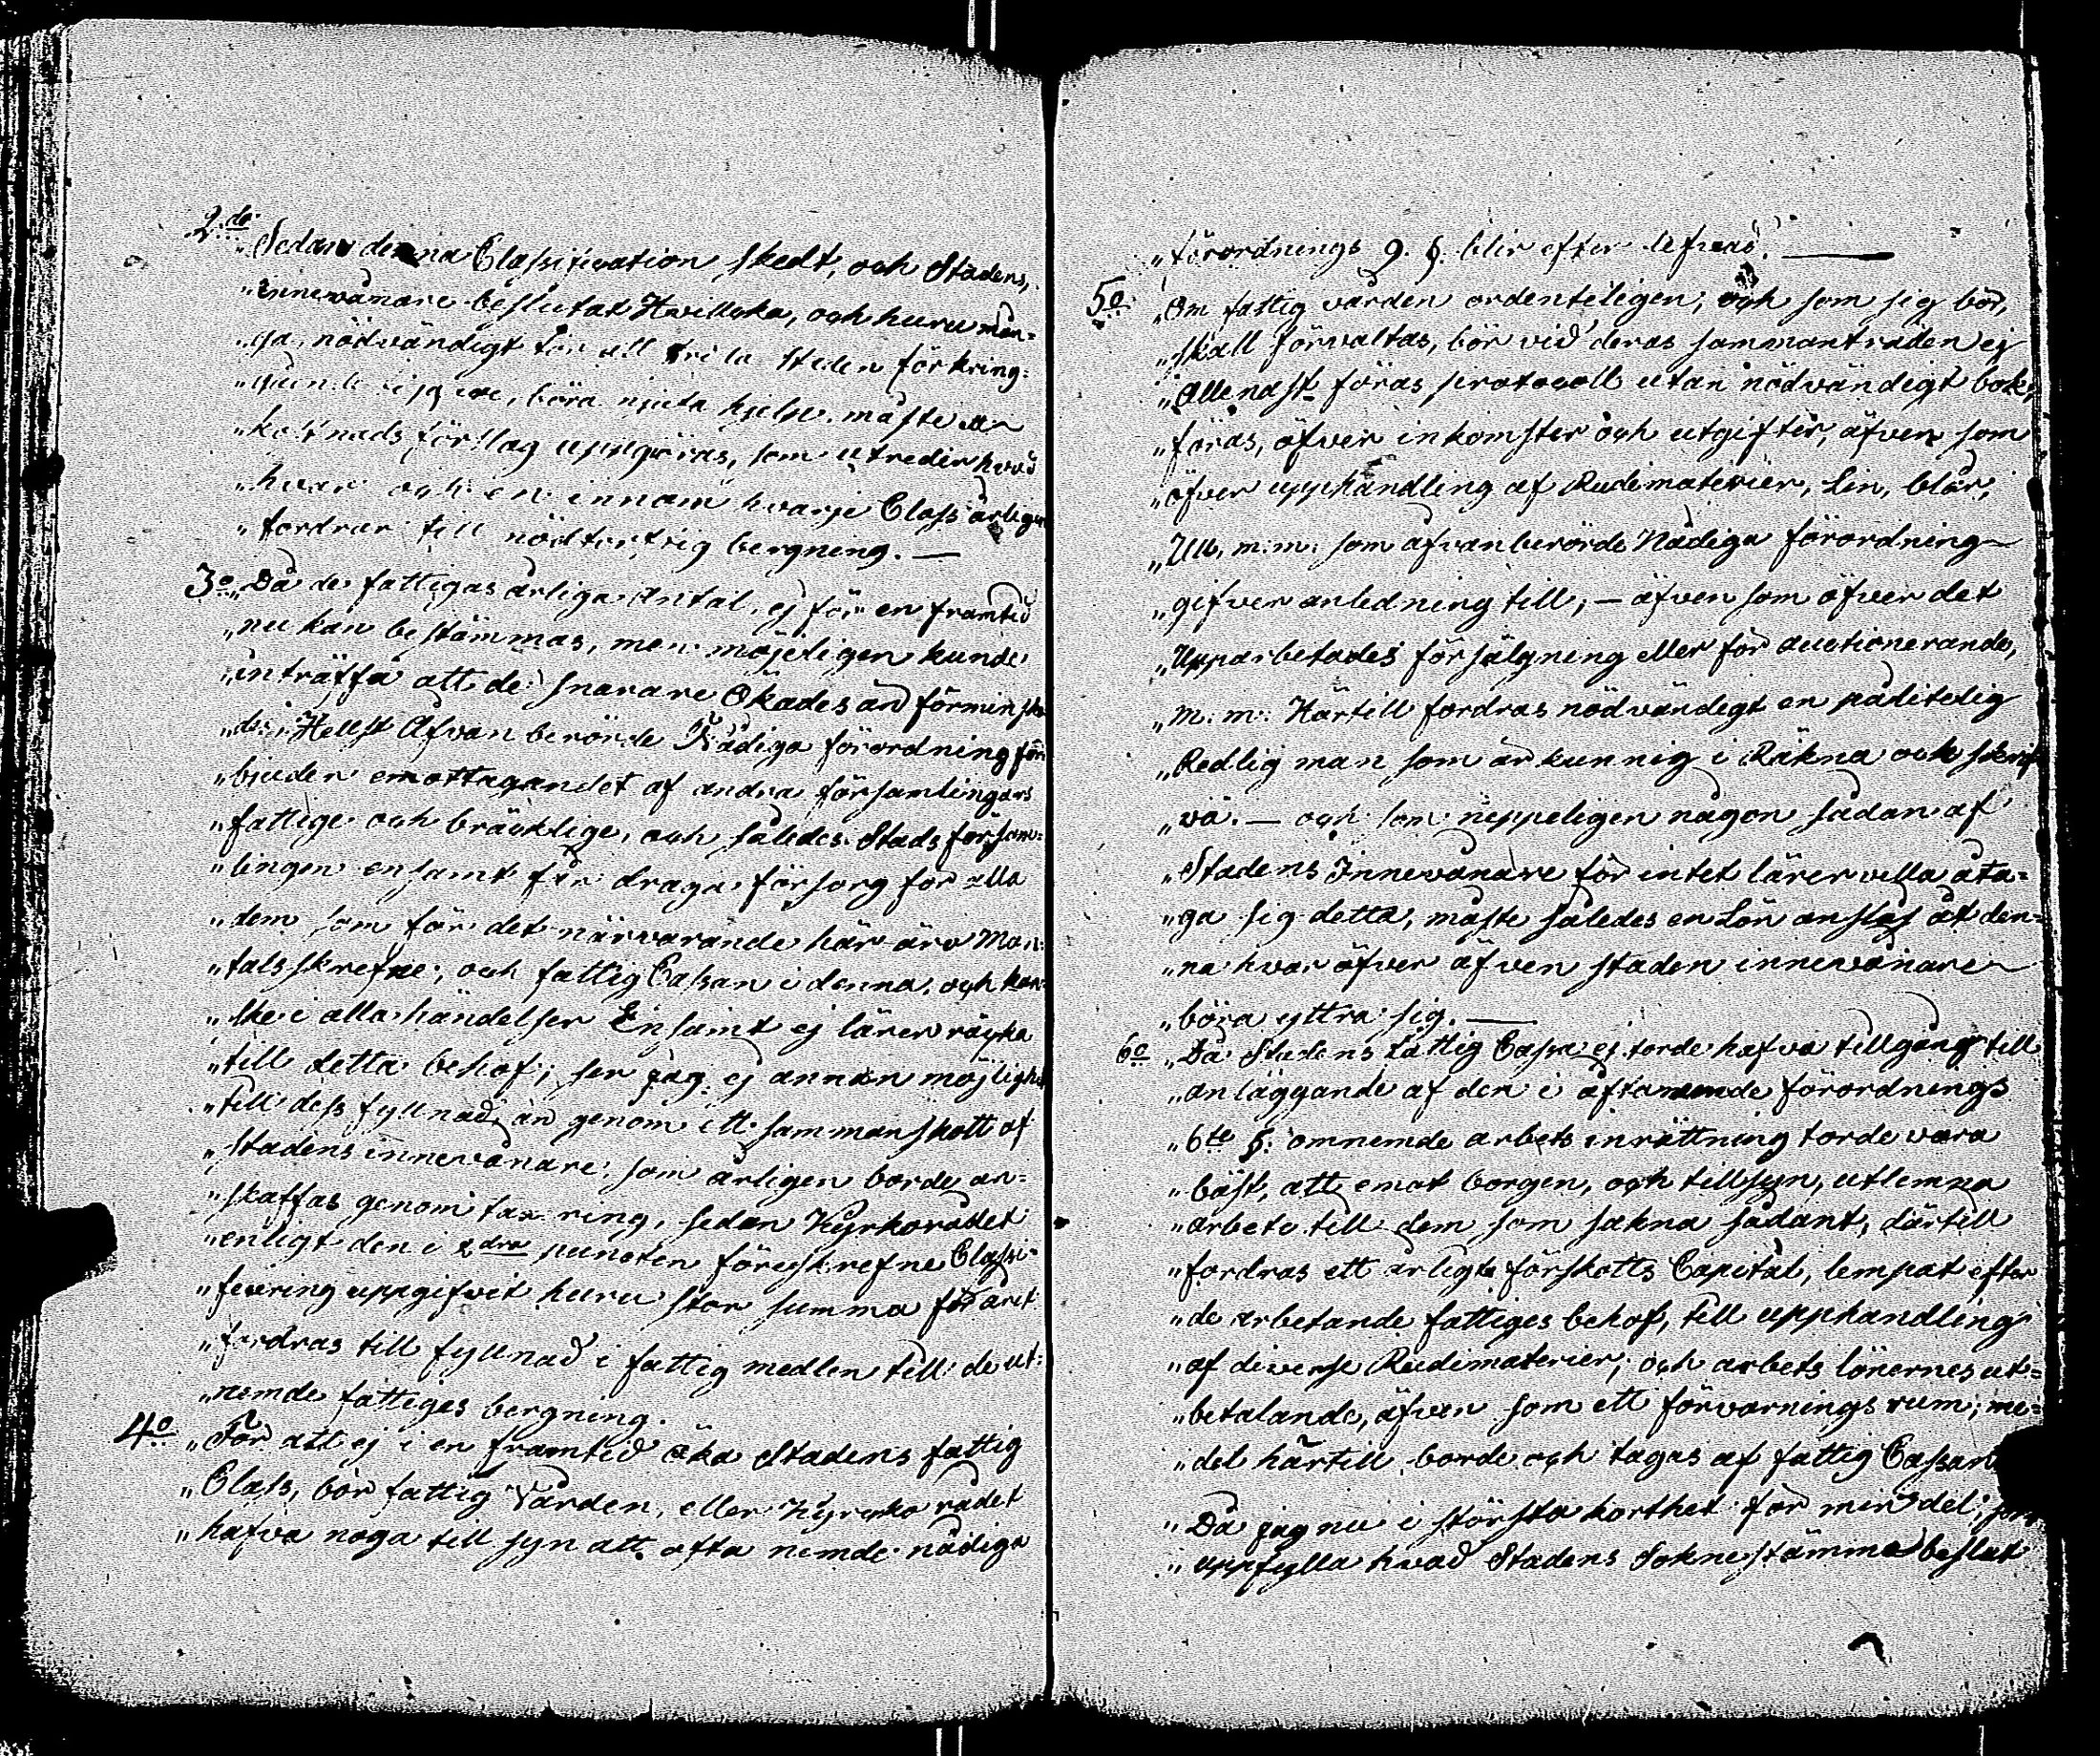 2.do
„Sedan denna Classification skedt, och Stadens,
„innevånare beslutat Hvillka, och huru mån=
„ga, nödvändigt för att fria staden för kring=
„gående tiggare, böra njuta hjelp. måste ett
„kostnads förslag uppgöras, som utreder hvad
„hvar och en innom hvarje Class årligen
„fordrar till nödtorftig bergning. —
3o „Då de fattigas årliga Antal, ej för en framtid
„nu kan bestämmas, men möjeligen kunde
„inträffa att de snarare Ökades än förminska
„des, Hellst Ofvan berörde Nådiga förordning för
„bjuder emottagandet af andra församlingars
„fattige och bräcklige, och således Stads försam=
„lingen ensamt får draga försorg för alla
„dem som för det närvarande här äro Man=
„talsskrefne, och fattig Cassan i denna, och kan=
„ske i alla händelser Ensamt ej lärer räcka
„till detta behof; ser jag ej annan möjlighet
„till dess fyllnad, än genom ett sammanskott af
„stadens innevånare som årligen borde an=
„skaffas genom taxering, sedan Kyrkorådet
„enligt den i 2dra puncten föreskrefne Classi=
„ficering uppgifvit huru stor summa för året
„fordras till fyllnad i fattig medlen till de ut=
„nemde fattiges bergning.
4o „För att ej i en framtid öka Stadens fattig
„Class, bör fattig Vården, eller Kyrcko rådet
„hafva noga till syn att ofta nemde nådiga
„förordnings 9. §. blir efter lefvad. —
5o „Om fattig vården ordenteligen, och som sig bör,
„skall förvaltas, bör vid deras sammanträden ej
„Allenast föras protocoll utan nödvändigt bok,
„föras, öfver inkomster och utgifter, äfven som
„öfver upphandling af Rudimaterier, Lin, blår,
„Ull, m:m: som ofvanberörde Nådiga förordning
„gifver anledning till; — äfven som öfver det
„Upparbetades försälgning eller för auctionerande,
„m: m: Härtill fordras nödvändigt en pålitelig
„Redlig man som är kunnig i Räkna och skrif
„va. — och som neppeligen någon sådan af
„Stadens Innevånare för intet lärer vella åta=
„ga sig detta, måste således en Lön anslås åt den=
„na hvar öfver äfven staden innevånare
„böra yttra sig. —
6o „Då Stadens Fattig Cassa ej torde hafva tillgång till
„anläggande af den i oftanemde förordnings
„6te §. omnemde arbets inrättning torde vara
„bäst, att emot borgen, och tillsyn, utlemna
„arbete till dem som sakna sådant, därtill
„fordras ett årligt förskotts Capital, lempat efter
„de arbetande fattiges behof, till upphandling
„af diverse Rudimaterier, och arbets lönernes ut=
„betalande, äfven som ett förvarnings rum; me=
„del härtill borde och tagas af fattig Cassan
„Då jag nu i största korthet för min del,
„uppfylla hvad Stadens Sokne stämma beslut